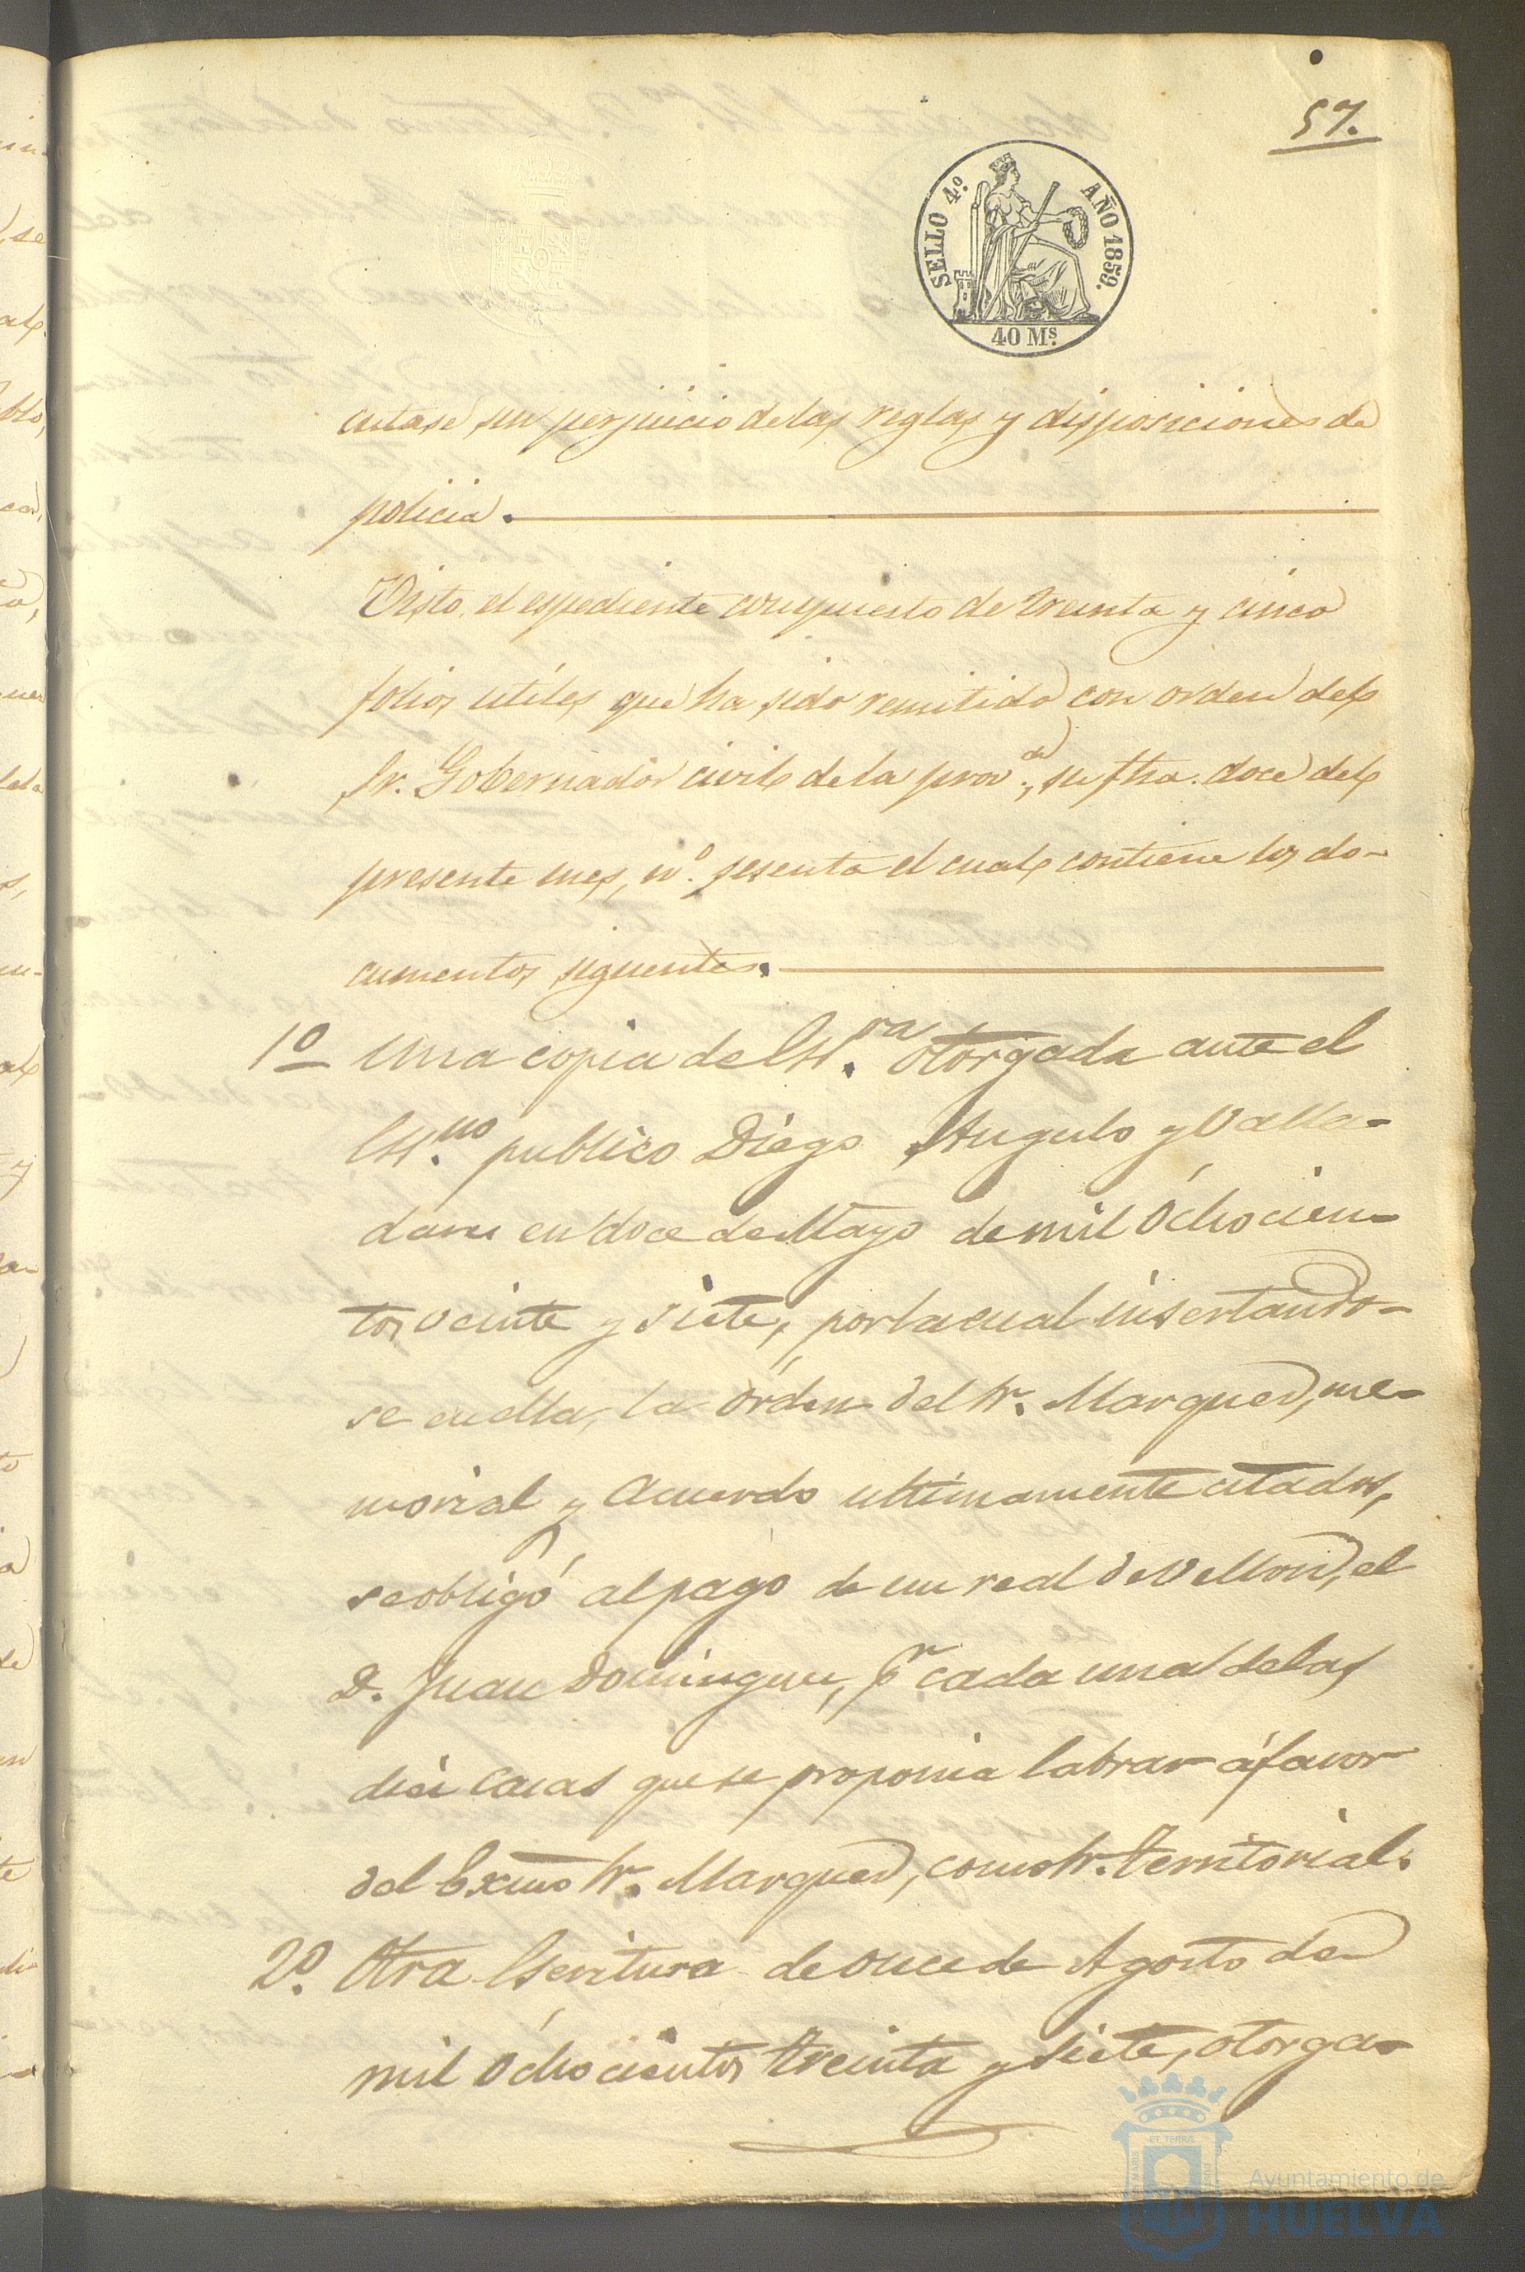 57.
SELLO 4º. AÑO 1859.
40 Ms.
cutase sin perjuicio de las reglas y disposiciones de
policia.
Visto el espediente compuesto de treinta y cinco
folios utiles que ha sido remitido con orden del
Sr. Gobernador civil de la prov.cia, su fha. doce del
presente mes, nº. sesenta el cual contiene los do-
cumentos siguientes.
1º Una copia de Esc.ra otorgada ante el
Ess.no publico Diego Angulo y Valla-
dares en doce de Mayo de mil ochocien-
tos veinte y siete, por la cual insertando-
se en ella, la órden del Sr. Marques, me-
morial y Acuerdo ultimamente citados,
se obligó al pago de un real de vellon, el
D. Juan Dominguez, pr cada una de las
diez casas que se proponia labrar á favor
del Exmo Sr. Marques, como Sr. territorial.
2º. Otra Escritura de once de Agosto de
mil ochocientos treinta y siete, otorga-
ET TERRIS
Ayuntamiento de
HUELVA